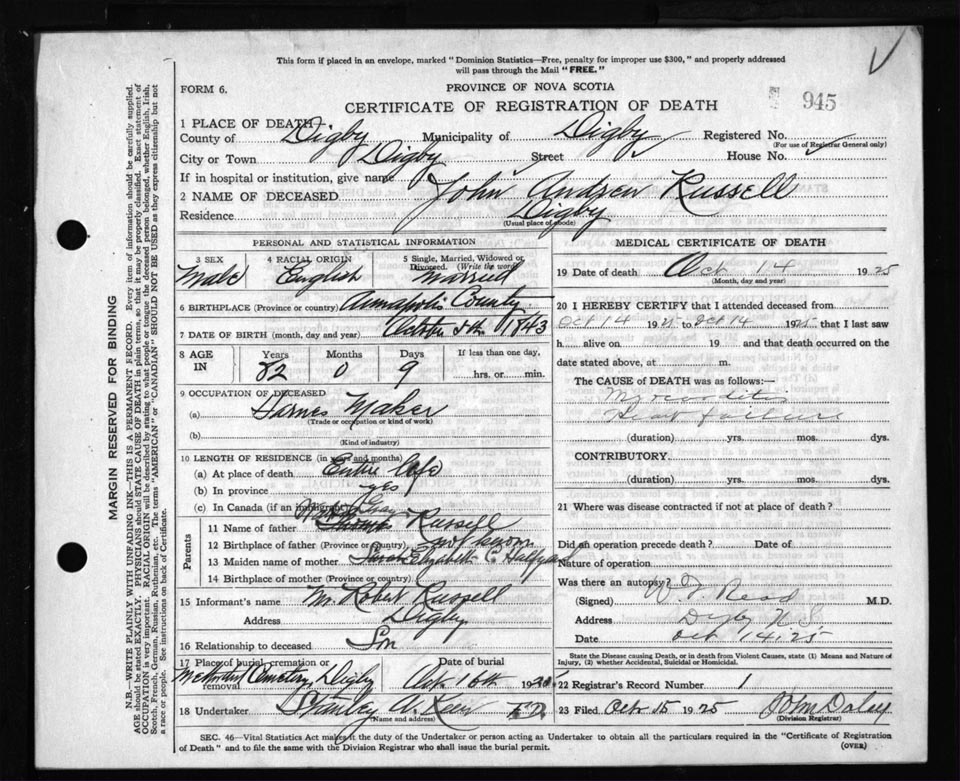 This form if placed in an envelope, marked "Dominion Statistics—Free, penalty for improper use $300," and properly addressed
will pass through the Mail "FREE."
FORM 6.
PROVINCE OF NOVA SCOTIA
CERTIFICATE OF REGISTRATION OF DEATH
945
MARGIN RESERVED FOR BINDING
N.B.—WRITE PLAINLY WITH UNFADING INK—THIS IS A PERMANENT RECORD. Every item of information should be carefully supplied.
AGE should be stated EXACTLY. PHYSICIANS should STATE CAUSE OF DEATH in plain terms, so that it may be properly classified. Exact statement of
OCCUPATION is very important. RACIAL ORIGIN will be described by stating to what people or tongue the deceased person belonged, whether English, Irish,
Scotch, French, German, Russian, Ruthenian, etc. The terms "AMERICAN" or "CANADIAN" SHOULD NOT BE USED as they express citizenship but not
a race or people. See instructions on back of Certificate.
1 PLACE OF DEATH
County of Digby Municipality of Digby Registered No.
(For use of Registrar General only)
City or Town Digby Street House No.
If in hospital or institution, give name
2 NAME OF DECEASED John Andrew Russell
Residence Digby
(Usual place of abode)
PERSONAL AND STATISTICAL INFORMATION
3 SEX Male
4 RACIAL ORIGIN English
5 Single, Married, Widowed or Divorced. (Write the word) Married
6 BIRTHPLACE (Province or country) Annapolis County
7 DATE OF BIRTH (month, day and year) October 5th 1843
8 AGE IN Years 82 Months 0 Days 9 If less than one day, hrs. or min.
9 OCCUPATION OF DECEASED
(a) Harness Maker
(Trade or occupation or kind of work)
(b)
(Kind of industry)
10 LENGTH OF RESIDENCE (in years and months)
(a) At place of death Entire life
(b) In province yes
(c) In Canada (if an immigrant)
Parents
11 Name of father Russell
12 Birthplace of father (Province or country) not known
13 Maiden name of mother Elizabeth C. Halfyard
14 Birthplace of mother (Province or country)
15 Informant's name M. Robert Russell
Address Digby
16 Relationship to deceased Son
17 Place of burial, cremation or removal Methodist Cemetery, Digby Date of burial Oct. 16th 19
18 Undertaker Stanley
(Name and address)
MEDICAL CERTIFICATE OF DEATH
19 Date of death Oct 14 1925
(Month, day and year)
20 I HEREBY CERTIFY that I attended deceased from
Oct 14 1925 to Oct 14 1925 that I last saw
h alive on 19 and that death occurred on the
date stated above, at m.
The CAUSE of DEATH was as follows:—
Myocarditis
Heart failure
(duration) yrs. mos. dys.
CONTRIBUTORY.
(duration) yrs. mos. dys.
21 Where was disease contracted if not at place of death?
Did an operation precede death? Date of
Nature of operation
Was there an autopsy?
(Signed) W. F. Read M.D.
Address Digby N.S.
Date Oct 14, 25
State the Disease causing Death, or in death from Violent Causes, state (1) Means and Nature of
Injury, (2) whether Accidental, Suicidal or Homicidal.
22 Registrar's Record Number 1
23 Filed Oct 15 1925 John Daley
(Division Registrar)
SEC. 46—Vital Statistics Act makes it the duty of the Undertaker or person acting as Undertaker to obtain all the particulars required in the "Certificate of Registration
of Death" and to file the same with the Division Registrar who shall issue the burial permit.
(OVER)